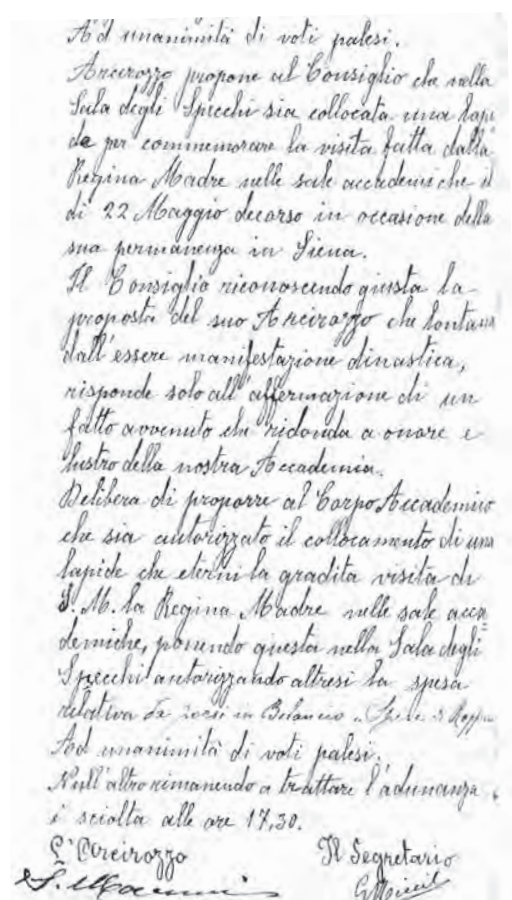 Ad unanimità di voti palesi.
Arcirozzo propone al Consiglio che nella
Sala degli Specchi sia collocata una lapi
de per commemorare la visita fatta dalla
Regina Madre nelle sale accademiche il
dì 22 Maggio decorso in occasione della
sua permanenza in Siena.
Il Consiglio riconoscendo giusta la
proposta del suo Arcirozzo che lontana
dall'essere manifestazione dinastica,
risponde solo all'affermazione di un
fatto avvenuto che ridonda a onore e
lustro della nostra Accademia.
Delibera di proporre al Corpo Accademico
che sia autorizzato il collocamento di una
lapide che eterni la gradita visita di
S. M. la Regina Madre nelle sale acca
demiche, ponendo questa nella Sala degli
Specchi autorizzando altresì la spesa
relativa da porsi in Bilancio Spese di
Ad unanimità di voti palesi.
Null'altro rimanendo a trattare l'adunanza
è sciolta alle ore 17,30.
L'Arcirozzo Il Segretario